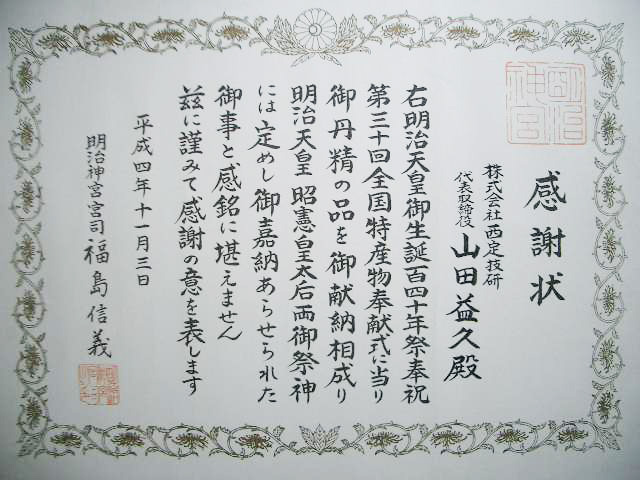 感謝状
株式会社西定技研
代表取締役 山田益久殿
右明治天皇御生誕百四十年祭奉祝
第三十回全国特産物奉献式に当り
御丹精の品を御献納相成り
明治天皇 昭憲皇太后両御祭神
には定めし御嘉納あらせられた
御事と感銘に堪えません
茲に謹みて感謝の意を表します
平成四年十一月三日
明治神宮宮司 福島信義
明治神宮